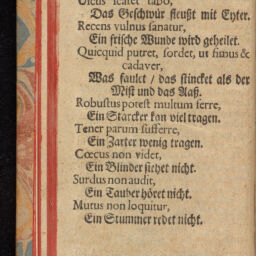 Ulcus scatet tabo,
Das Geschwür fleußt mit Eyter.
Recens vulnus sanatur,
Ein frische Wunde wird geheilet.
Quicquid putret, sordet, ut fimus &
cadaver,
Was faulet / das stincket als der
Mist und das Aaß.
Robustus potest multum ferre,
Ein Starcker kan viel tragen.
Tener parum sufferre,
Ein Zarter wenig tragen.
Cœcus non videt,
Ein Blinder siehet nicht.
Surdus non audit,
Ein Tauber höret nicht.
Mutus non loquitur,
Ein Stummer redet nicht.